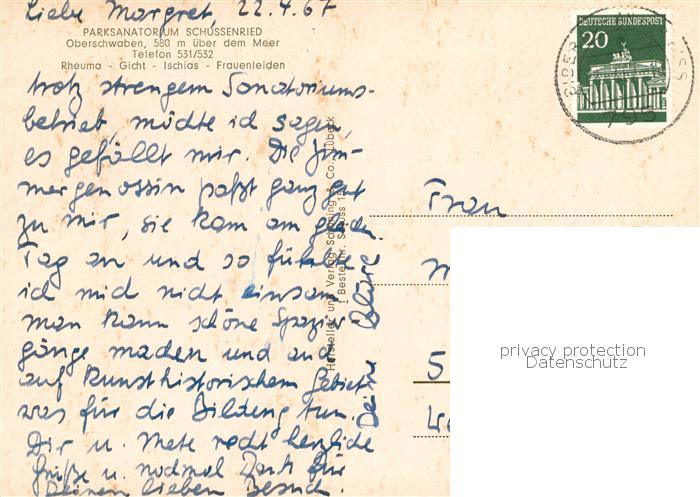 Liebe Margret, 22.4.67
PARKSANATORIUM SCHUSSENRIED
Oberschwaben, 580 m über dem Meer
Telefon 531/532
Rheuma - Gicht - Ischias - Frauenleiden
trotz strengem Sanatoriums-
betrieb, möchte ich sagen,
es gefällt mir. Die Zim-
mergenossin paßt ganz gut
zu mir, sie kam am gleichen
Tag an und so fühlte
ich mich nicht einsam
man kann schöne Spazier
gänge machen und auch
auf kunsthistorischem Gebiet
was für die Bildung tun.
Dir u. Mete recht herzliche
Grüße u. nochmal Dank für
Deinen lieben Besuch.
Deine
Hersteller und Verlag Schöning & Co., Lübeck
Bestellnr.
DEUTSCHE BUNDESPOST
20
795
Frau
5
privacy protection
Datenschutz